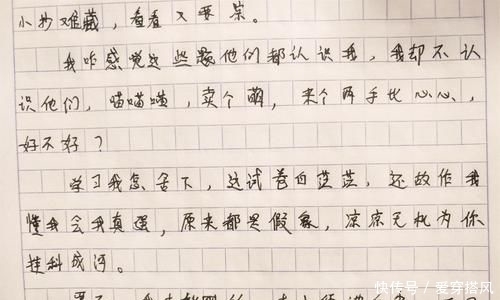 小抄难藏，看看又要呆。
我咋感觉这些题他们都认识我，我却不认
识他们，喵喵噗，卖个萌，来个两手比心心，
好不好？
学习我忽苦下，这试卷白茫茫，还故作我
懂我会我真强，原来都是假象，凉凉无机为你
挂科成河。
快传号／爱穿搭风